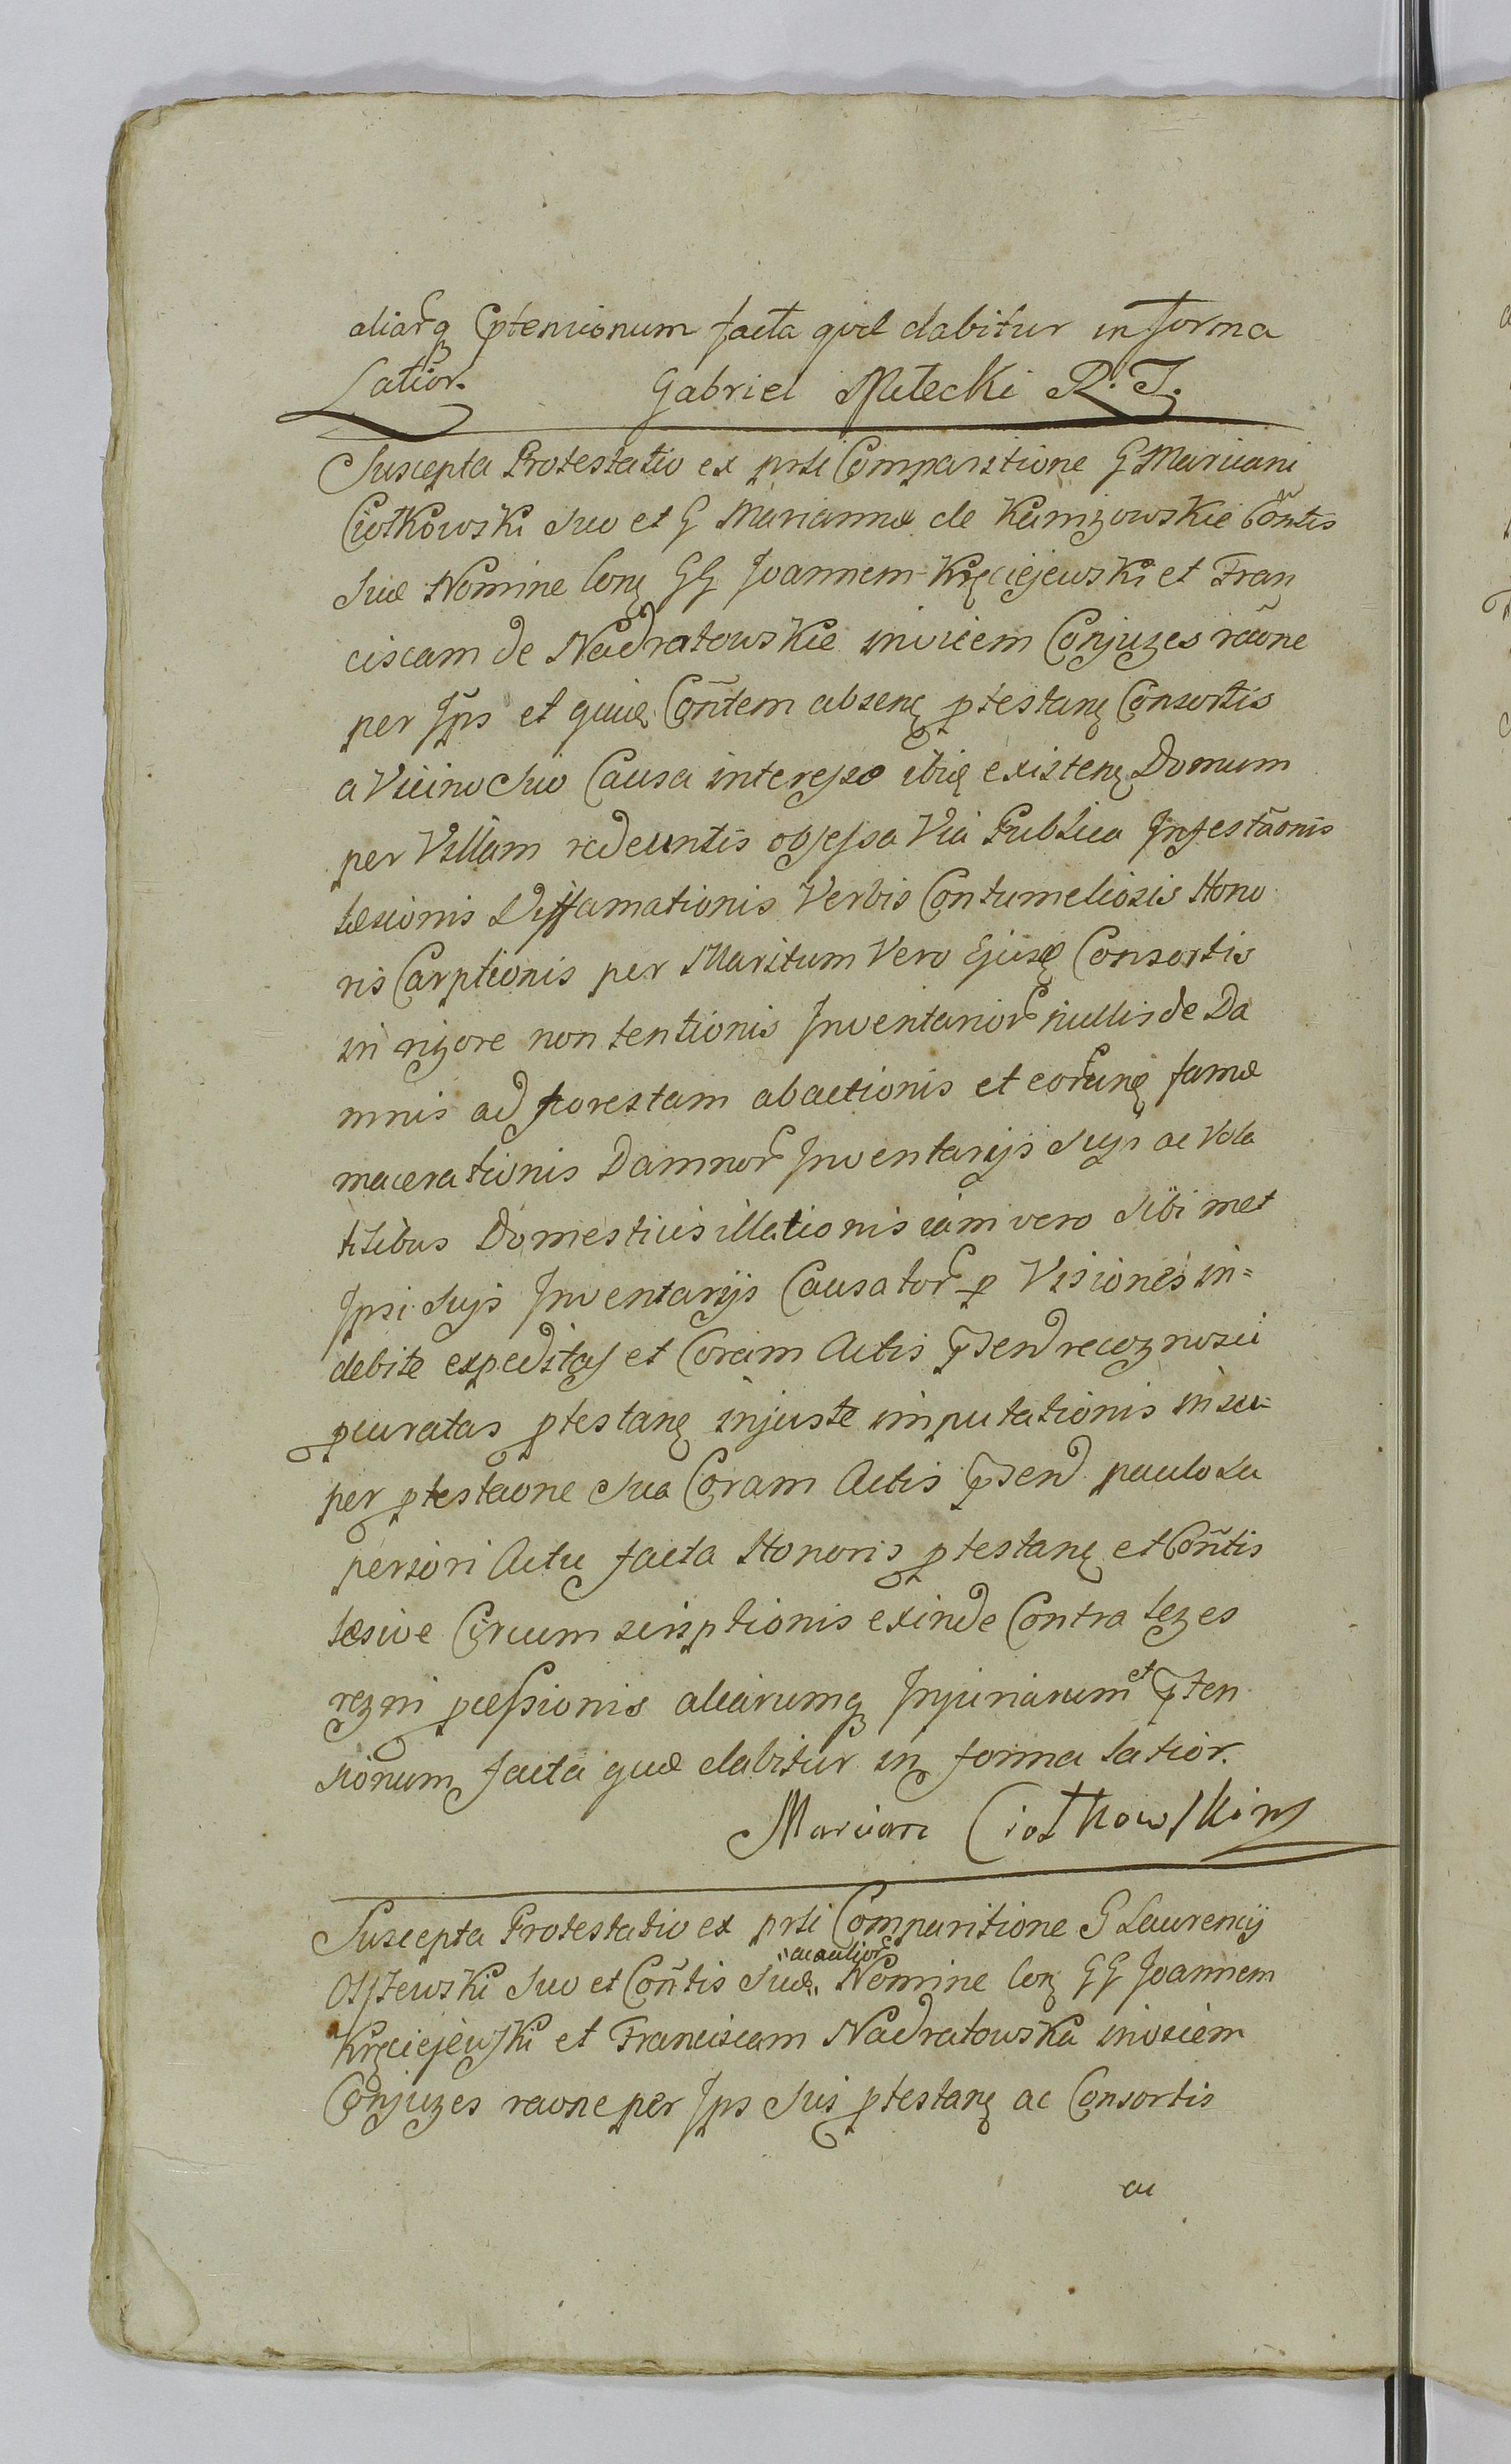 aliarq ptensionum facta qvae dabitur in forma
Latior. Gabriel Miłecki R. J.
Suscepta Protestatio ex prsti Comparitione G Mariani
Ciotkowski suo et G Mariannæ de Kunigowskie Cõntis
suæ Nomine Con GG Joannem Kręciejewski et Fran
ciscam de Nadratowskie invicem Conjuges raõne
per Ips et quid Cõntem absenę ptestanę Consortis
a Vicino suo Causa interesse ibię existenę Domum
per Villam redeuntis obsessa Via Publica Infestãonis
læsionis Diffamationis Verbis Contumeliosis Hono
ris Carptionis per Maritum Vero Ejusd Consortis
in rigore non tentionis Inventarior nullis de Da
mnis ad forestam abactionis et eorunę famæ
macerationis Damnor Inventarijs sujs ac Vola
tilibus Domesticis illationis iam vero sibi met
Ipsi sujs Inventarijs Causator p Visiones in=
debite expeditas et Coram Actis psend recognosci
pcuratas ptestanę injuste imputationis insu=
per ptestaone sua Coram Actis psend paulo su
periori Actu facta Honoris ptestanę et Cõntis
læsive Circumscriptionis exinde Contra leges
regni pcessionis aliarumq Injuriarum et pten
sionum facta quæ dabitur in forma latior.
Marcian Ciotkowski m
Suscepta Protestatio ex prsti Comparitione G Laurencij
Osstewski suo et Cõntis suæ ac aulior Nomine Con GG Joannem
Kręciejewski et Franciscam Nadratowska invicem
Conjuges raone per Ips suis ptestanę ac Consortis
au